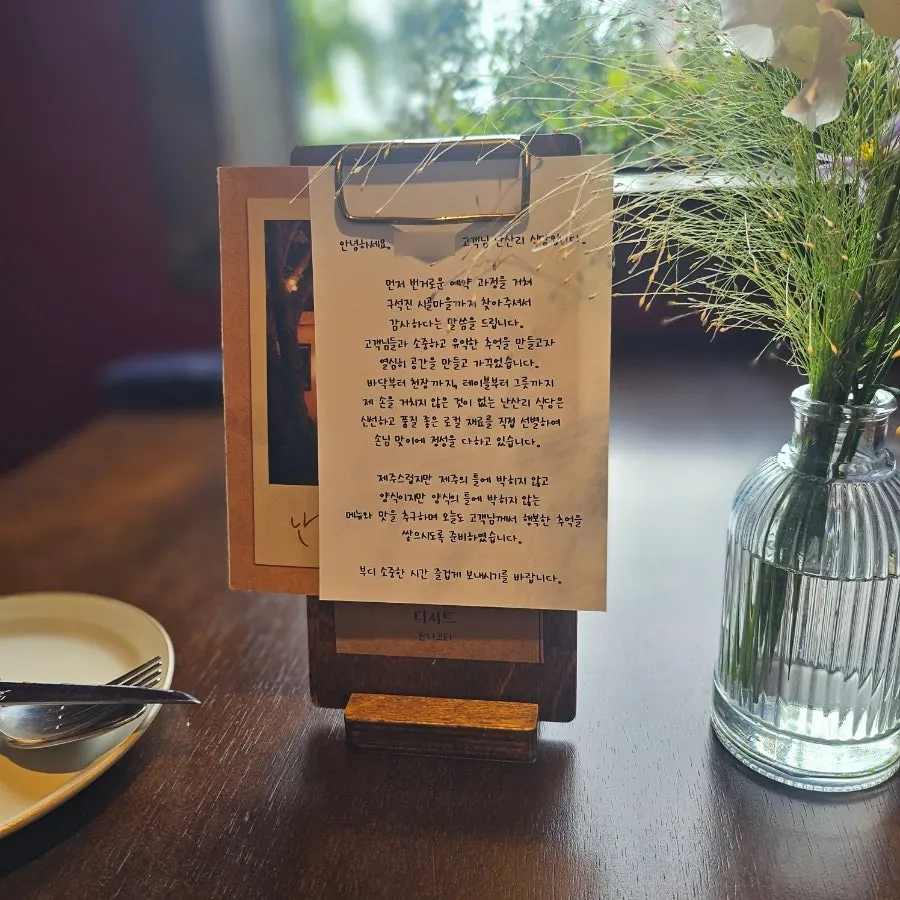 안녕하세요. 고객님 난산리 식당입니다.
먼저 번거로운 예약 과정을 거쳐
구석진 시골마을까지 찾아주셔서
감사하다는 말씀을 드립니다.
고객님들과 소중하고 유익한 추억을 만들고자
열심히 공간을 만들고 가꾸었습니다.
바닥부터 천장까지, 테이블부터 그릇까지
제 손을 거치지 않은 것이 없는 난산리 식당은
신선하고 품질 좋은 로컬 재료를 직접 선별하여
손님 맞이에 정성을 다하고 있습니다.
제주스럽지만 제주의 틀에 박히지 않고
양식이지만 양식의 틀에 박히지 않는
메뉴와 맛을 추구하며 오늘도 고객님께서 행복한 추억을
쌓으시도록 준비하였습니다.
부디 소중한 시간 즐겁게 보내시기를 바랍니다.
난
디저트
판나코타